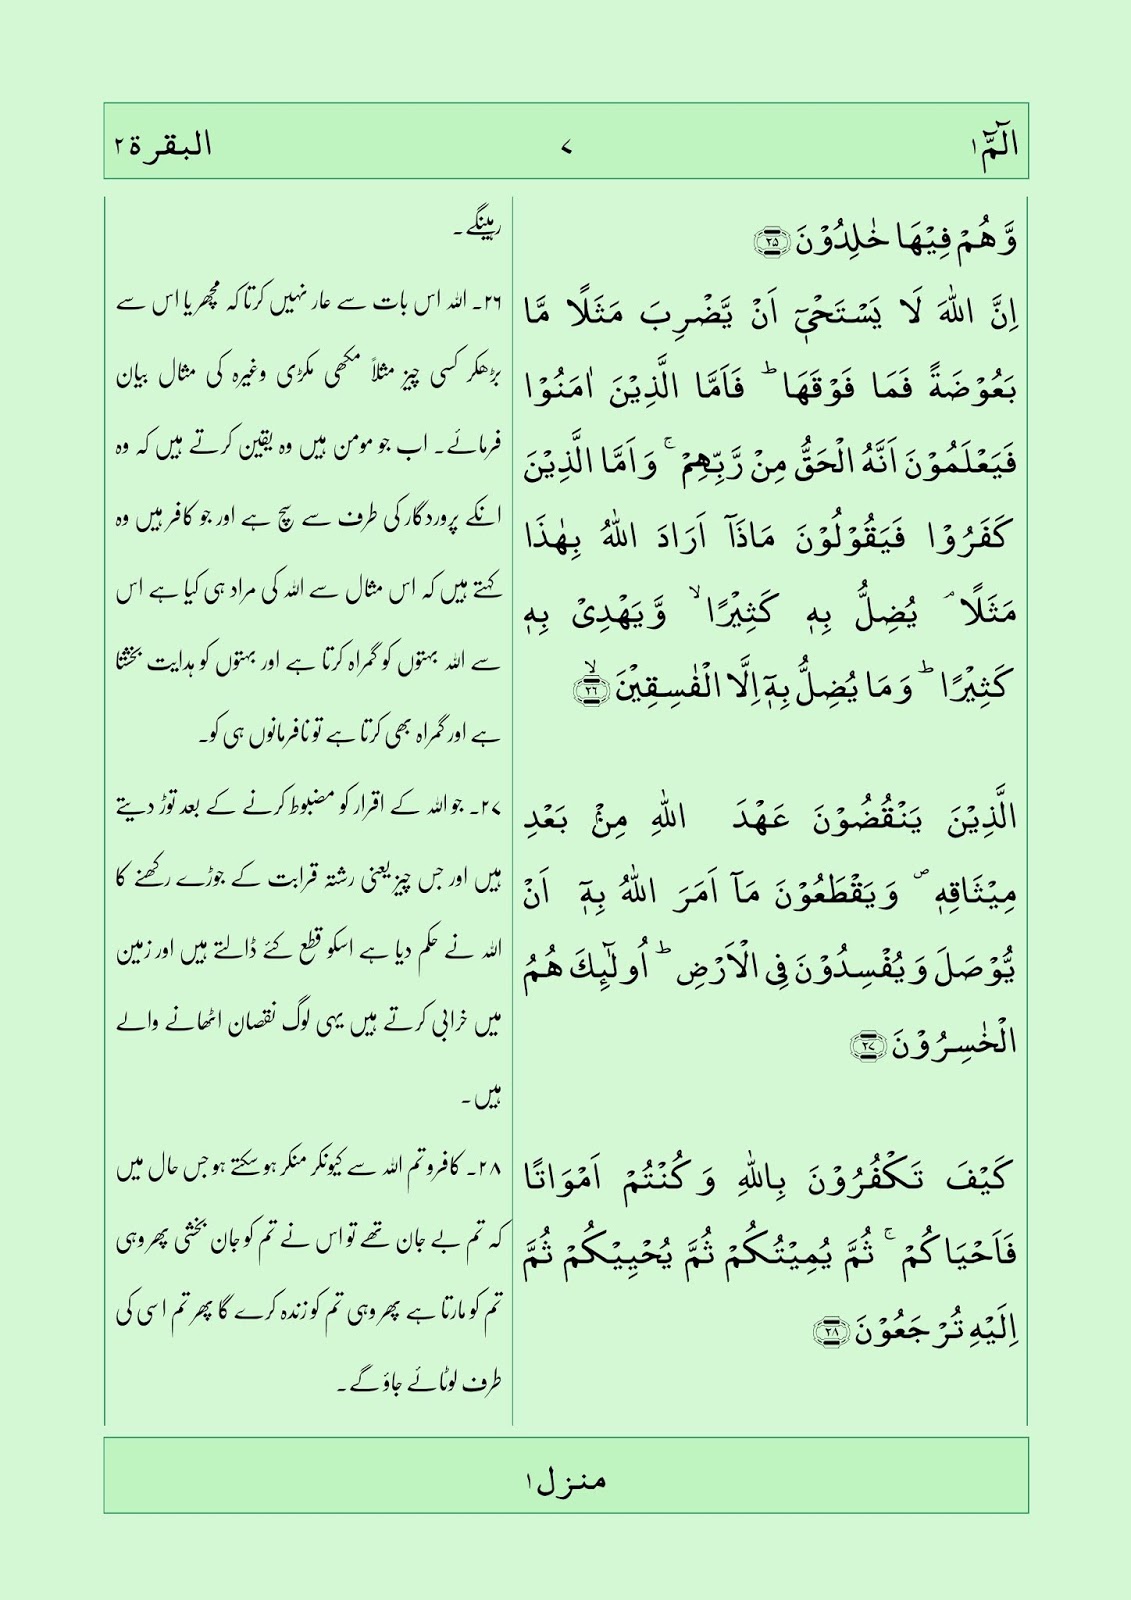 الٓمّٓ ۱
۷
البقرة ۲
وَّ هُمْ فِیْهَا خٰلِدُوْنَ ﴿۲۵﴾
اِنَّ اللّٰهَ لَا یَسْتَحْیٖۤ اَنْ یَّضْرِبَ مَثَلًا مَّا
بَعُوْضَةً فَمَا فَوْقَهَا ؕ فَاَمَّا الَّذِیْنَ اٰمَنُوْا
فَیَعْلَمُوْنَ اَنَّهُ الْحَقُّ مِنْ رَّبِّهِمْ ۚ وَ اَمَّا الَّذِیْنَ
كَفَرُوْا فَیَقُوْلُوْنَ مَاذَاۤ اَرَادَ اللّٰهُ بِهٰذَا
مَثَلًا ۘ یُضِلُّ بِهٖ كَثِیْرًا ۙ وَّ یَهْدِیْ بِهٖ
كَثِیْرًا ؕ وَ مَا یُضِلُّ بِهٖۤ اِلَّا الْفٰسِقِیْنَ ﴿ۙ۲۶﴾
الَّذِیْنَ یَنْقُضُوْنَ عَهْدَ اللّٰهِ مِنْۢ بَعْدِ
مِیْثَاقِهٖ ۪ وَ یَقْطَعُوْنَ مَاۤ اَمَرَ اللّٰهُ بِهٖۤ اَنْ
یُّوْصَلَ وَ یُفْسِدُوْنَ فِی الْاَرْضِ ؕ اُولٰٓئِكَ هُمُ
الْخٰسِرُوْنَ ﴿۲۷﴾
كَیْفَ تَكْفُرُوْنَ بِاللّٰهِ وَ كُنْتُمْ اَمْوَاتًا
فَاَحْیَاكُمْ ۚ ثُمَّ یُمِیْتُكُمْ ثُمَّ یُحْیِیْكُمْ ثُمَّ
اِلَیْهِ تُرْجَعُوْنَ ﴿۲۸﴾
رہینگے۔
۲۶۔ اللہ اس بات سے عار نہیں کرتا کہ مچھر یا اس سے
بڑھکر کسی چیز مثلاً مکھی مکڑی وغیرہ کی مثال بیان
فرمائے۔ اب جو مومن ہیں وہ یقین کرتے ہیں کہ وہ
انکے پروردگار کی طرف سے سچ ہے اور جو کافر ہیں وہ
کہتے ہیں کہ اس مثال سے اللہ کی مراد ہی کیا ہے اس
سے اللہ بہتوں کو گمراہ کرتا ہے اور بہتوں کو ہدایت بخشتا
ہے اور گمراہ بھی کرتا ہے تو نافرمانوں ہی کو۔
۲۷۔ جو اللہ کے اقرار کو مضبوط کرنے کے بعد توڑ دیتے
ہیں اور جس چیز یعنی رشتہ قرابت کے جوڑے رکھنے کا
اللہ نے حکم دیا ہے اسکو قطع کئے ڈالتے ہیں اور زمین
میں خرابی کرتے ہیں یہی لوگ نقصان اٹھانے والے
ہیں۔
۲۸۔ کافرو تم اللہ سے کیونکر منکر ہو سکتے ہو جس حال میں
کہ تم بے جان تھے تو اس نے تم کو جان بخشی پھر وہی
تم کو مارتا ہے پھر وہی تم کو زندہ کرے گا پھر تم اسی کی
طرف لوٹائے جاؤ گے۔
منزل ۱